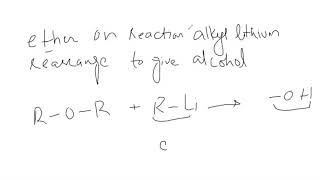 ether on reaction alkyl lithium
rearrange to give alcohol
R-O-R + R-Li → -OH
C